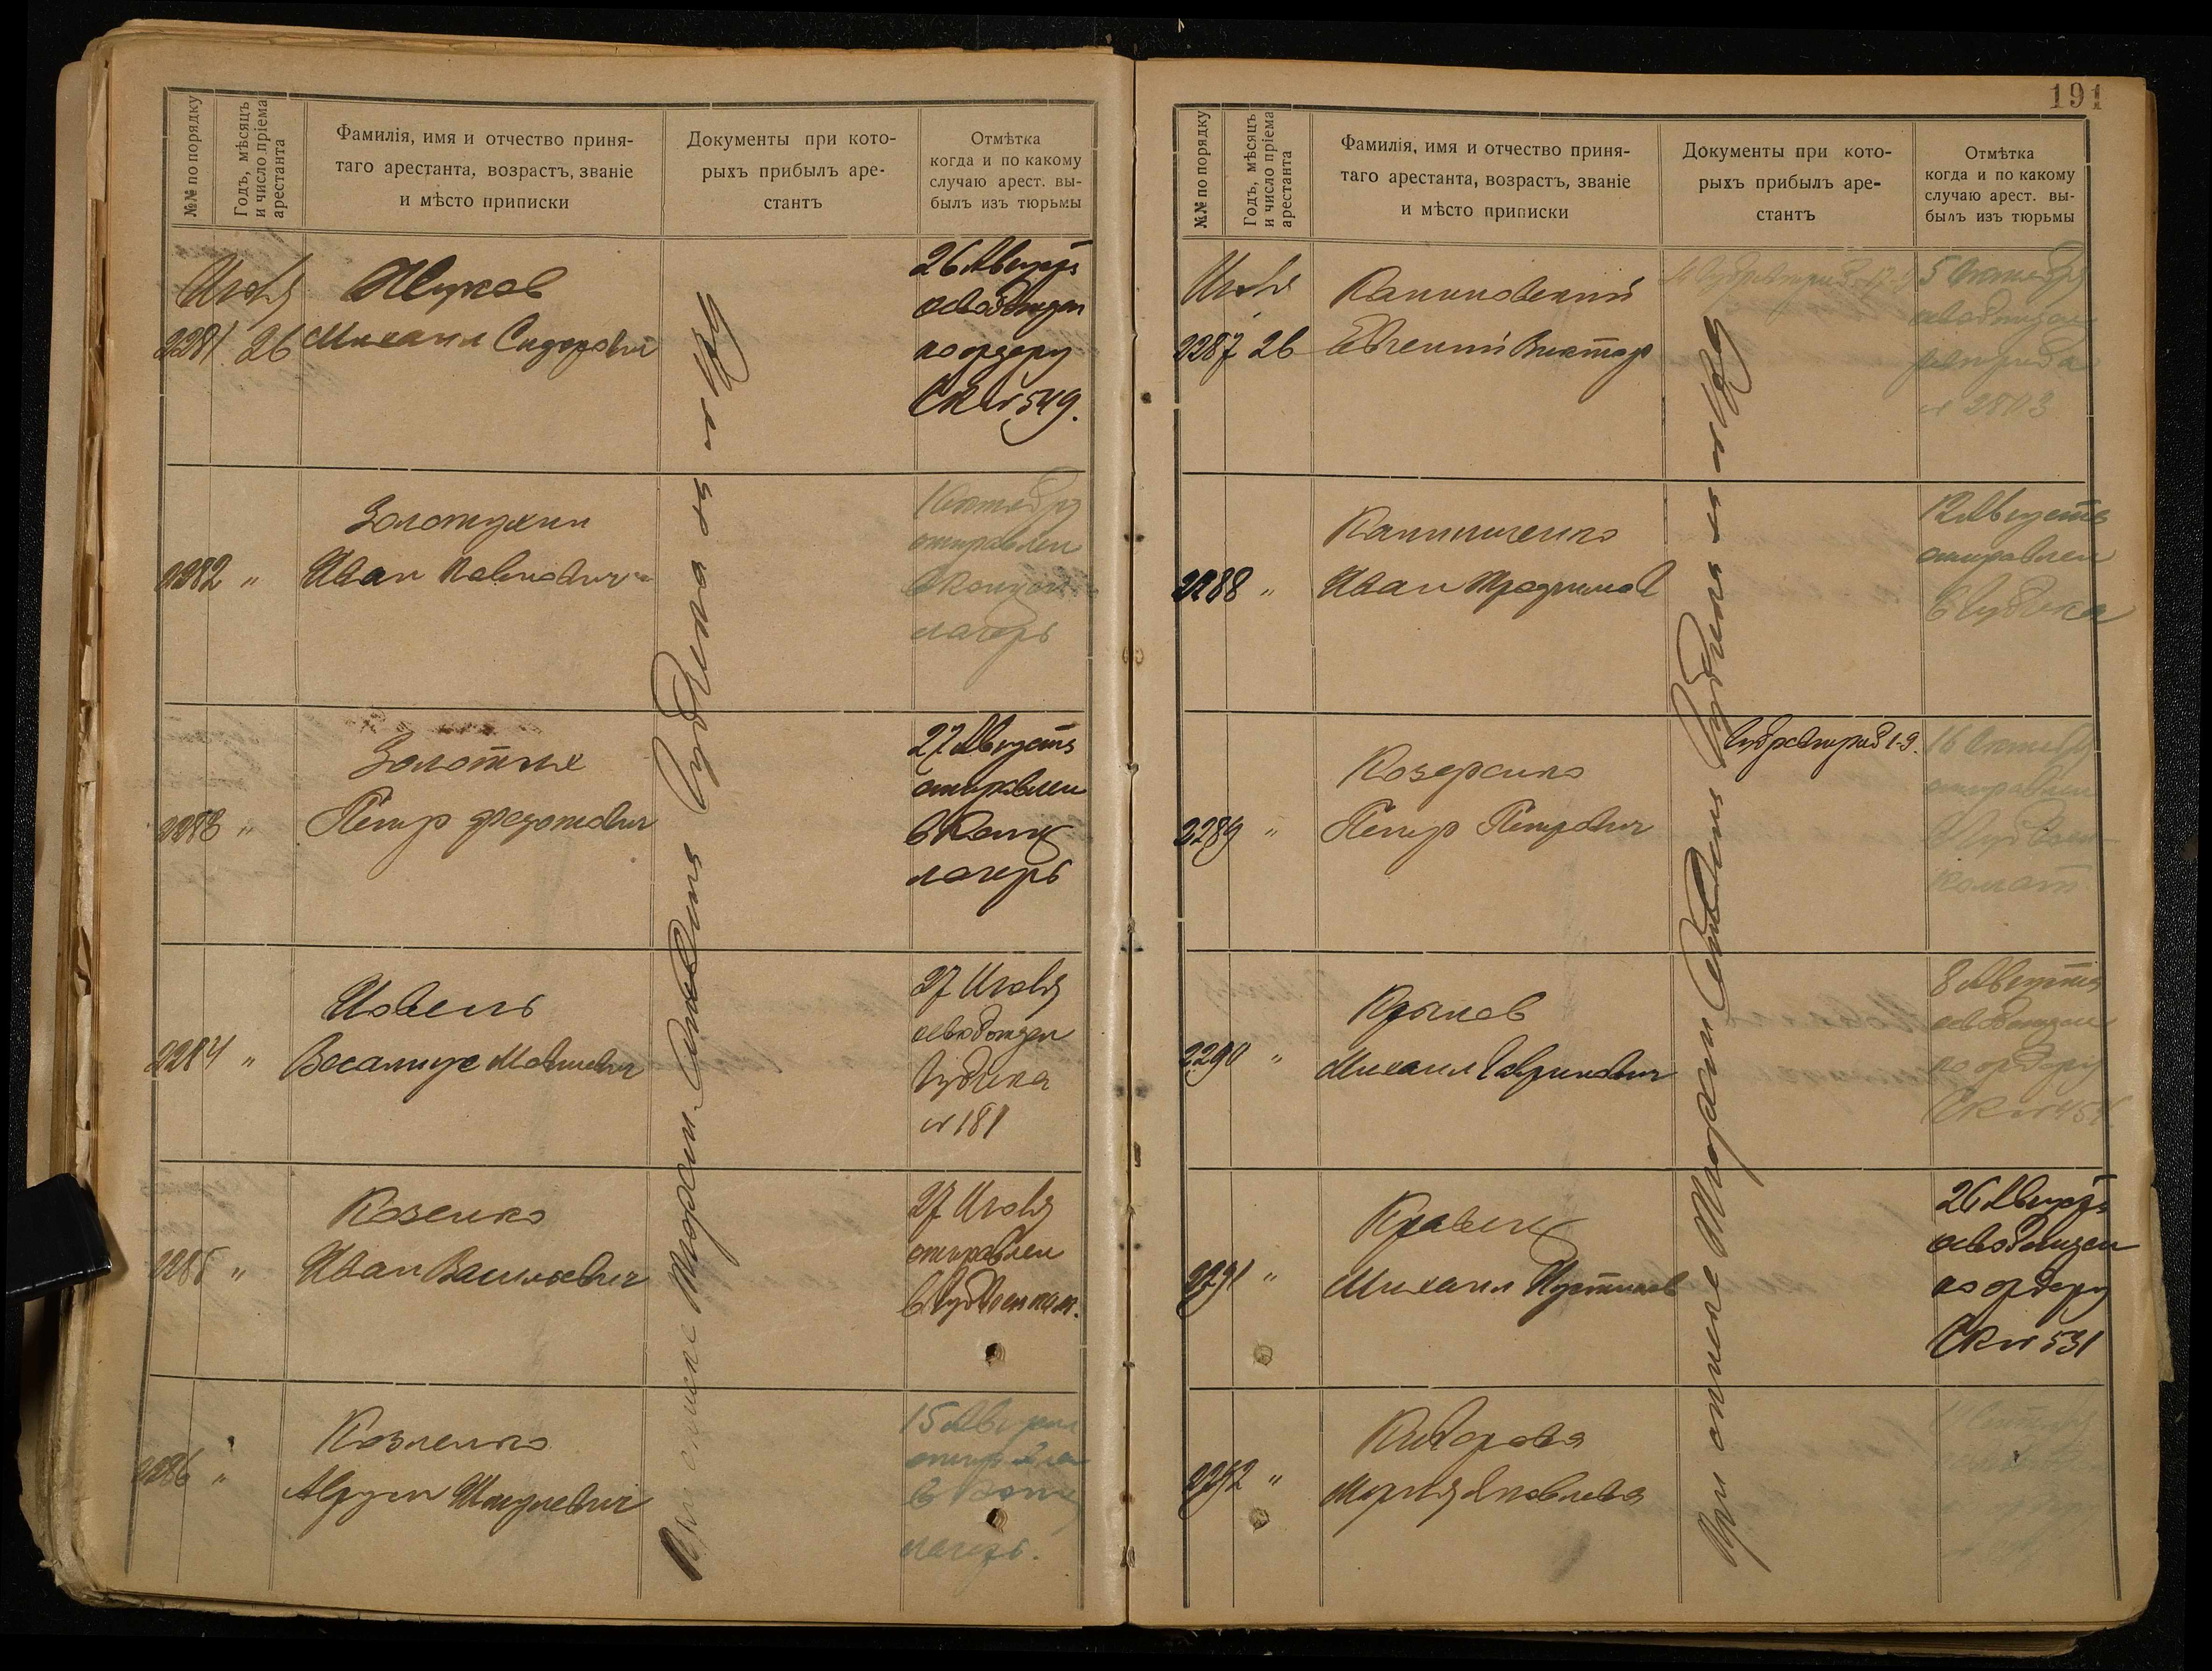 №№ по порядку
Годъ, мѣсяцъ
и число пріема
арестанта
Фамилія, имя и отчество приня-
таго арестанта, возрастъ, званіе
и мѣсто приписки
Документы при кото-
рыхъ прибылъ аре-
стантъ
Отмѣтка
когда и по какому
случаю арест. вы-
былъ изъ тюрьмы
Июля
2281 26
Жуков
Михаил Сидорович
26 Августа
освобожден
по ордеру
СК № 549.
2282 "
Золотухин
Иван Павлович
1 Октября
отправлен
в Концен
лагерь
2283 "
Золотых
Петр Федотович
27 Августа
отправлен
в Конц
лагерь
2284 "
Иовель
27 Июля
освобожден
Губчека
№ 181
2285 "
Козенко
Иван Васильевич
27 Июля
отправлен
в Губвоенком.
2286 "
Козленко
15 Августа
отправлен
в Конц
лагерь.
При списке Тюрем. Отделения Губчека за №
191
№№ по порядку
Годъ, мѣсяцъ
и число пріема
арестанта
Фамилія, имя и отчество приня-
таго арестанта, возрастъ, званіе
и мѣсто приписки
Документы при кото-
рыхъ прибылъ аре-
стантъ
Отмѣтка
когда и по какому
случаю арест. вы-
былъ изъ тюрьмы
Июля
2287 26
Калиновский
Евгений Виктор
5 Октября
освобожден
№ 2803
2288 "
Калиниченко
Иван Трофимов
12 Августа
отправлен
в Губчека
2289 "
Петр Петрович
16 Октября
отправлен
2290 "
Крылов
Михаил Гаврилович
8 Августа
освобожден
по ордеру
СК №
2291 "
Кравец
Михаил Устинов
26 Августа
освобожден
по ордеру
СК № 531
2292 "
Мария Яковлева
При списке Тюрем Отделения Губчека за №